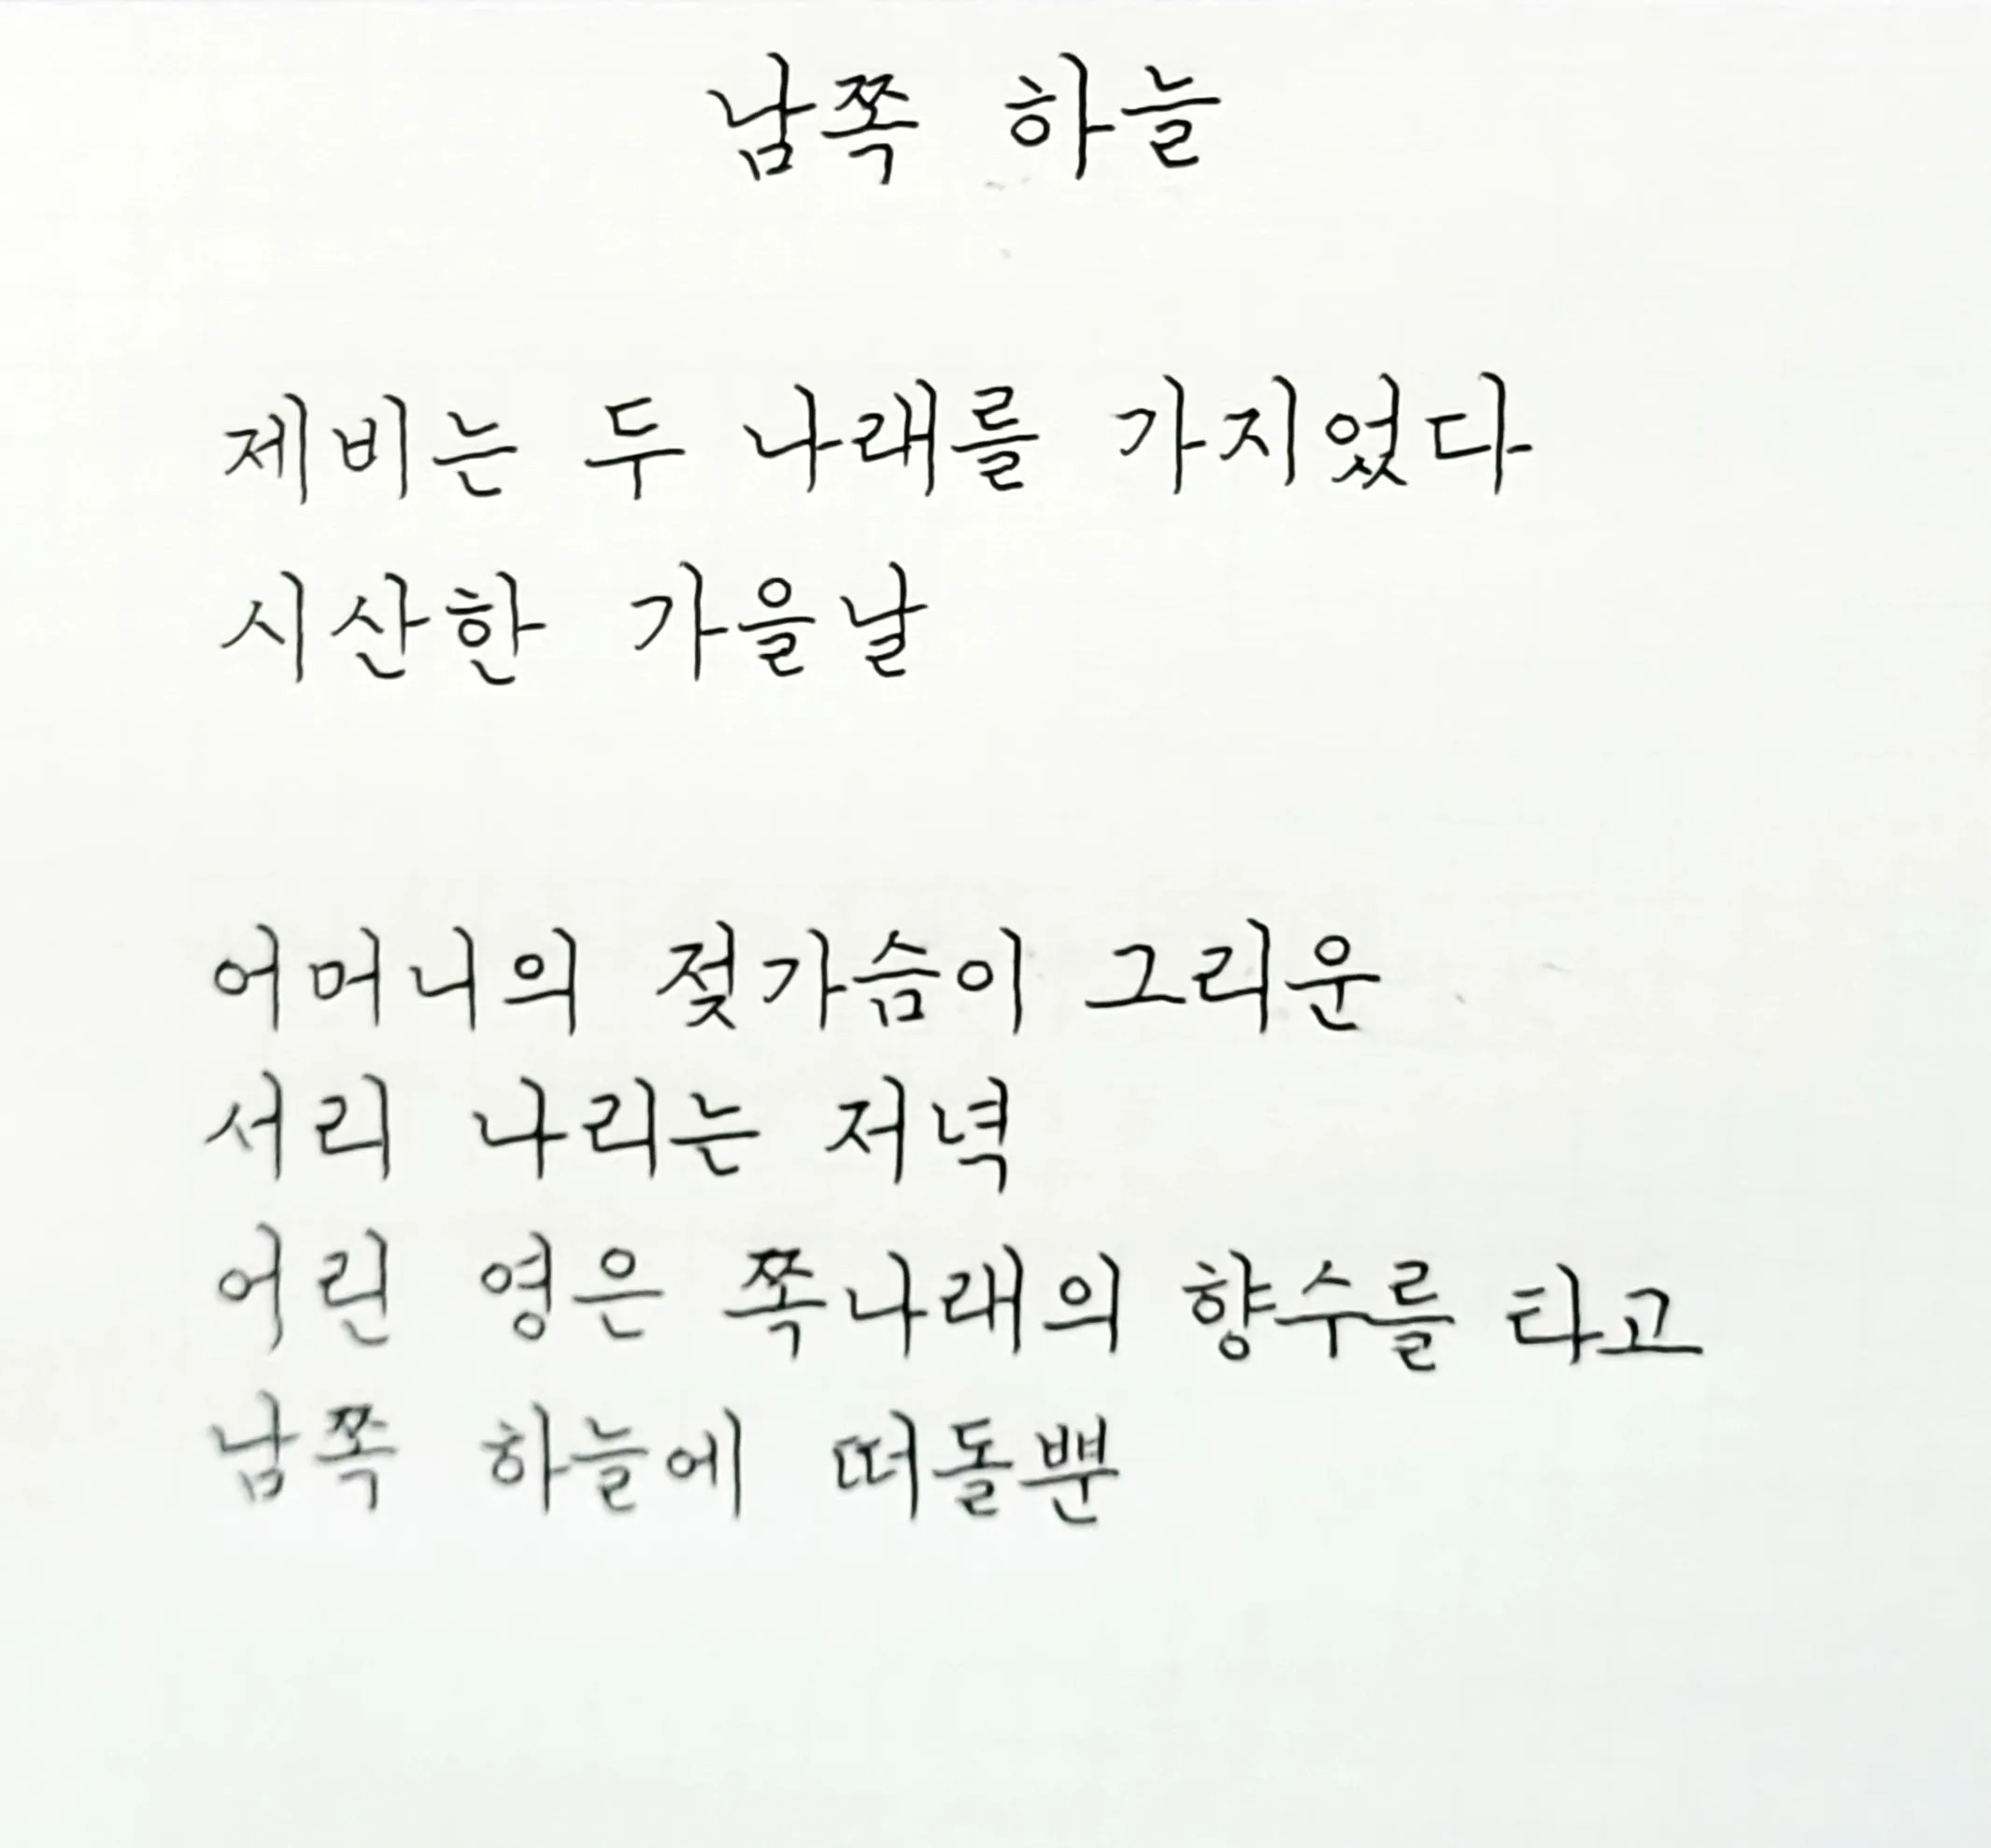 남쪽 하늘
제비는 두 나래를 가지었다
시산한 가을날
어머니의 젖가슴이 그리운
서리 나리는 저녁
어린 영은 쪽나래의 향수를 타고
남쪽 하늘에 떠돌뿐